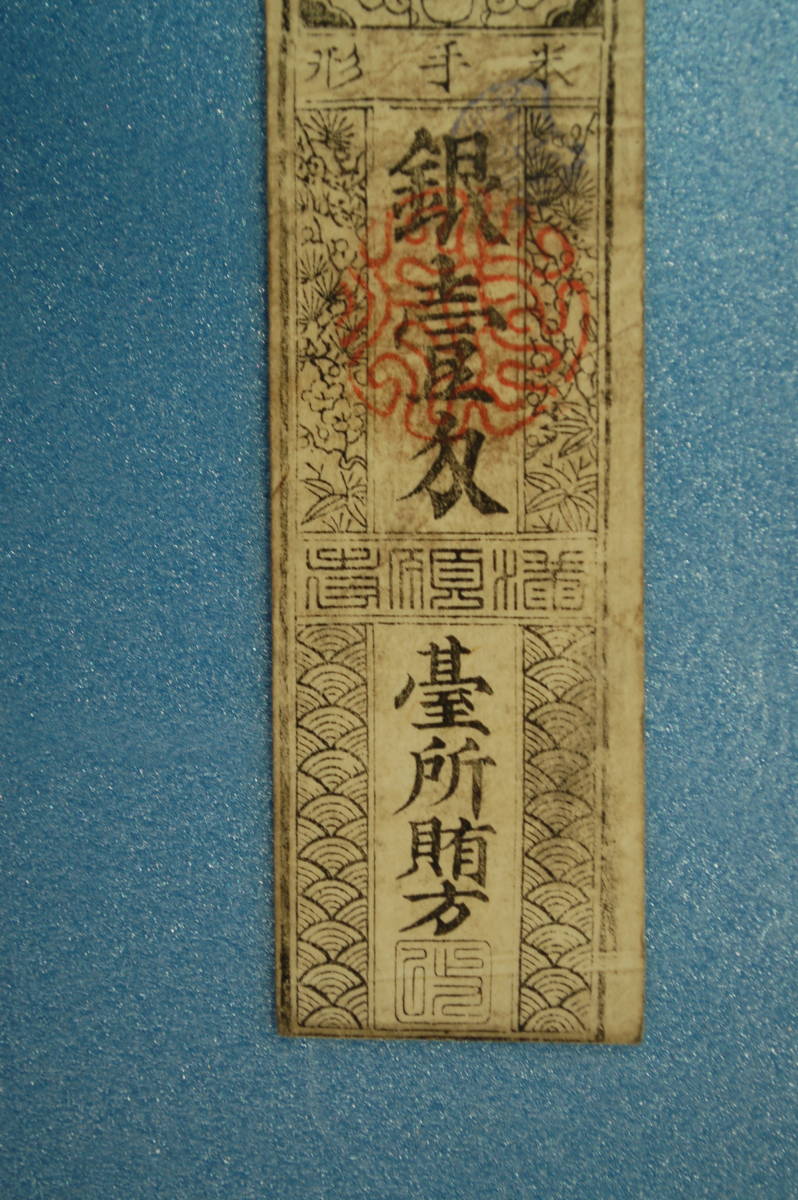 米手形
銀壹匁
臺所賄方